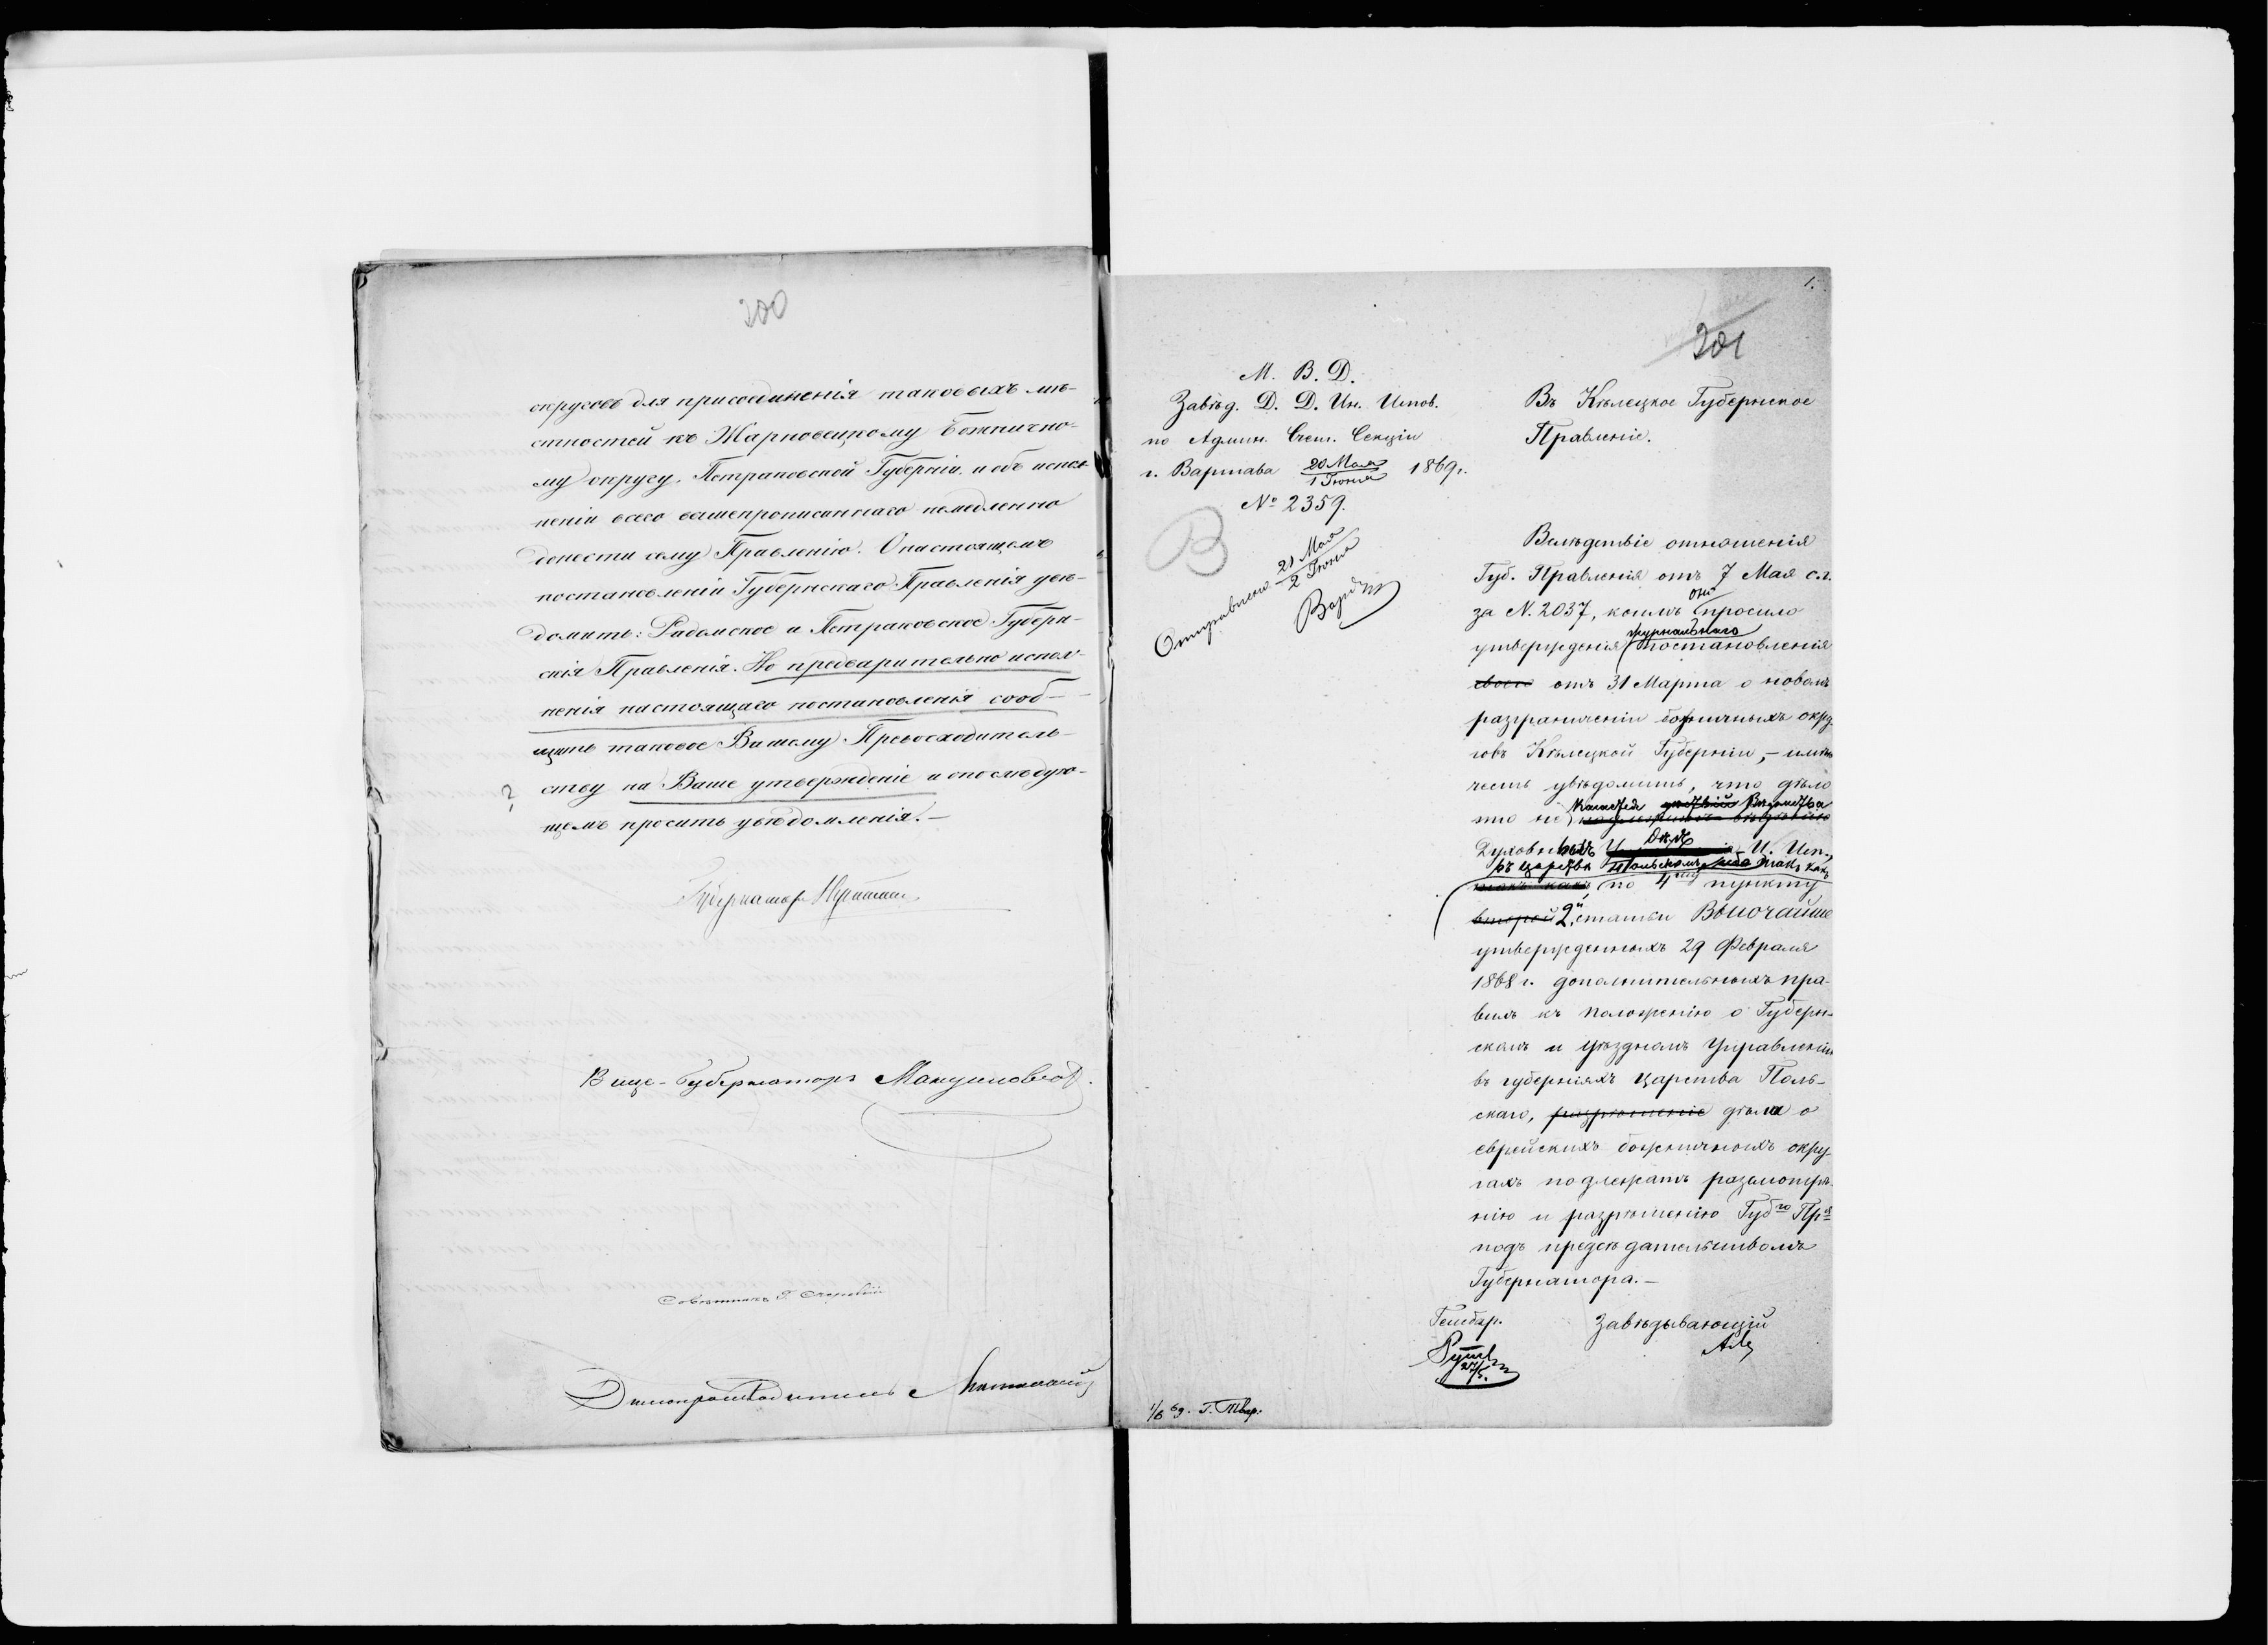 200
округовъ для присоединенія таковыхъ мѣ-
стностей къ Жарновецкому Божнично-
му округу, Петраковской Губерніи. и объ испол
неніи всего вышепрописаннаго немедленно
донести сему Правленію. О настоящемъ
постановленіи Губернскаго Правленія увѣ-
домить: Радомское и Петраковское Губерн-
скія Правленія. Но предварительно испол-
ненія настоящаго постановленія сооб-
щить таковое Вашему Превосходитель-
? ству на Ваше утвержденіе и о послѣдую-
щемъ просить увѣдомленія.—
Губернаторъ
Вице-Губернаторъ
Совѣтникъ
Дѣлопроизводитель
1.
201
М. В. Д.
Завѣд. Д. Д. Ин. Испов.
по Админ. Счет. Секціи
г. Варшава 20 Мая / 1 Іюня 1869 г.
№ 2359.
В
Отправлено 21 Мая / 2 Іюня
Въ Кѣлецкое Губернское
Правленіе.
Вслѣдствіе отношенія
Губ. Правленія отъ 7 Мая с.г.
за N. 2037, коимъ оно просило
утвержденія журнальнаго постановленія
своего отъ 31 Марта о новомъ
разграниченіи божничныхъ окру-
говъ Кѣлецкой Губерніи, – имѣю
честь увѣдомить, что дѣло
касается Вѣдомства
это не
Духовныхъ Дѣлъ И. Исп.
въ Царствѣ Польскомъ, такъ какъ
такъ какъ, по 4му пункту
второй 2й статьи Высочайше
утвержденныхъ 29 Февраля
1868 г. дополнительныхъ пра-
вилъ къ положенію о Губерн-
скомъ и Уѣздномъ Управленіи
въ губерніяхъ Царства Поль-
скаго, разрѣшеніе дѣла о
еврейскихъ божничныхъ окру-
гахъ подлежатъ разсмотрѣ-
нію и разрѣшенію Губго Прв
подъ предсѣдательствомъ
Губернатора.—
Завѣдывающій
27/5.
1/6 69.